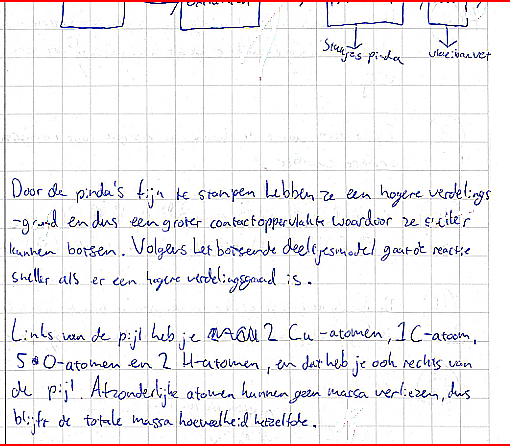 Stukjes pinda
vloeibaar vet
Door de pinda's fijn te stampen hebben ze een hogere verdelings
-graad en dus een groter contactoppervlakte waardoor ze sneller
kunnen botsen. Volgens het botsende deeltjesmodel gaat de reactie
sneller als er een hogere verdelingsgraad is.
Links van de pijl heb je 2 Cu-atomen, 1 C-atoom,
5 O-atomen en 2 H-atomen, en dat heb je ook rechts van
de pijl. Afzonderlijke atomen kunnen geen massa verliezen, dus
blijft de totale massa hoeveelheid hetzelfde.